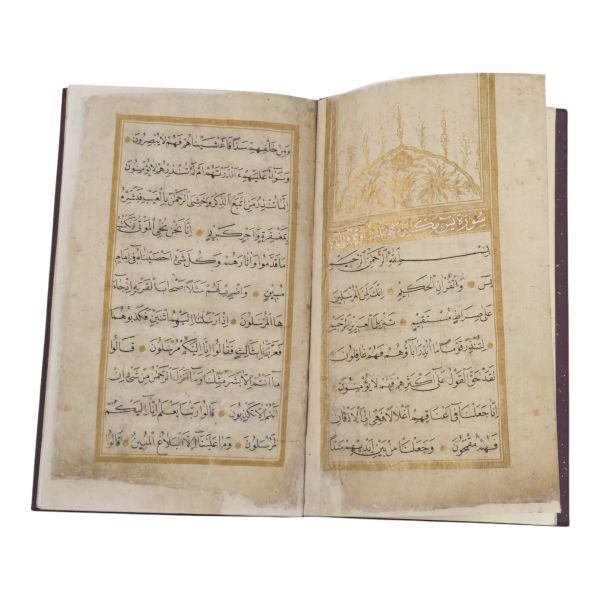 سورة يس
بسم الله الرحمن الرحيم
يس والقرآن الحكيم انك لمن المرسلين
على صراط مستقيم تنزيل العزيز الرحيم
لتنذر قوما ما انذر آباؤهم فهم غافلون
لقد حق القول على اكثرهم فهم لا يؤمنون
انا جعلنا في اعناقهم اغلالا فهي الى الاذقان
فهم مقمحون وجعلنا من بين ايديهم سدا
ومن خلفهم سدا فاغشيناهم فهم لا يبصرون
وسواء عليهم ءانذرتهم ام لم تنذرهم لا يؤمنون
انما تنذر من اتبع الذكر وخشي الرحمن بالغيب فبشره
بمغفرة واجر كريم انا نحن نحيي الموتى ونكتب
ما قدموا وآثارهم وكل شيء احصيناه في امام
مبين واضرب لهم مثلا اصحاب القرية اذ جا
ءها المرسلون اذ ارسلنا اليهم اثنين فكذبوهما
فعززنا بثالث فقالوا انا اليكم مرسلون قالوا
ما انتم الا بشر مثلنا وما انزل الرحمن من شيء ان
انتم الا تكذبون قالوا ربنا يعلم انا اليكم
لمرسلون وما علينا الا البلاغ المبين قالوا